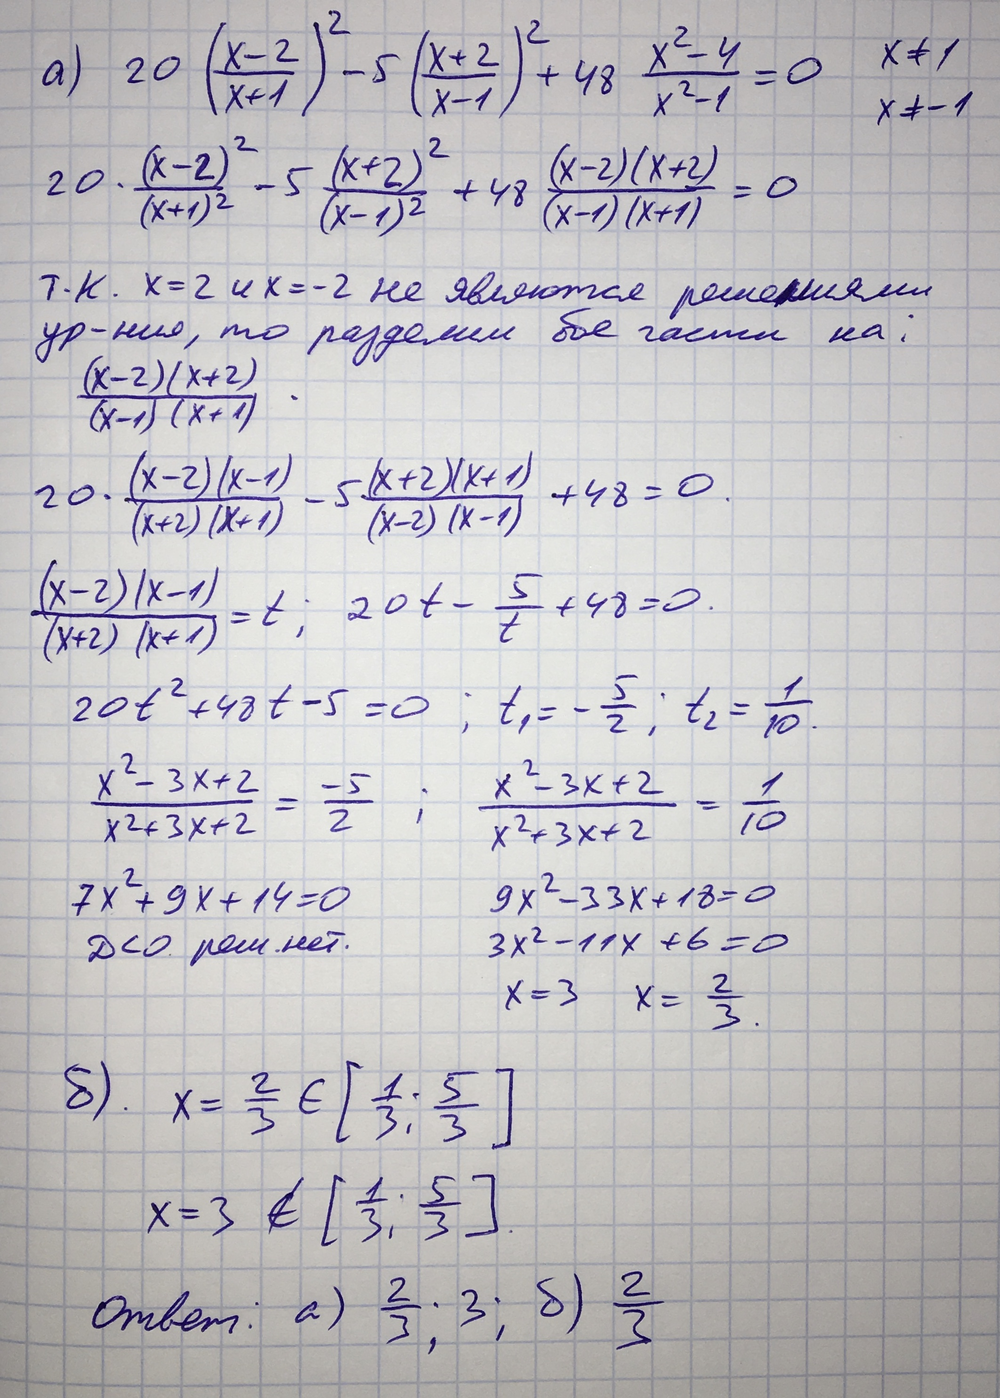 а) 20 ((x-2)/(x+1))² - 5 ((x+2)/(x-1))² + 48 (x²-4)/(x²-1) = 0   x ≠ 1
x ≠ -1
20 · (x-2)²/(x+1)² - 5 (x+2)²/(x-1)² + 48 (x-2)(x+2)/((x-1)(x+1)) = 0
т.к. x=2 и x=-2 не являются решениями
ур-ния, то разделим обе части на:
(x-2)(x+2)/((x-1)(x+1)) .
20 · (x-2)(x-1)/((x+2)(x+1)) - 5 (x+2)(x+1)/((x-2)(x-1)) + 48 = 0.
(x-2)(x-1)/((x+2)(x+1)) = t; 20t - 5/t + 48 = 0.
20t² + 48t - 5 = 0 ; t₁ = -5/2 ; t₂ = 1/10.
(x²-3x+2)/(x²+3x+2) = -5/2 ; (x²-3x+2)/(x²+3x+2) = 1/10
7x²+9x+14=0   9x²-33x+18=0
D<0. реш. нет.   3x²-11x+6=0
x=3   x= 2/3.
б). x = 2/3 ∈ [1/3; 5/3]
x=3 ∉ [1/3; 5/3].
Ответ: а) 2/3; 3; б) 2/3